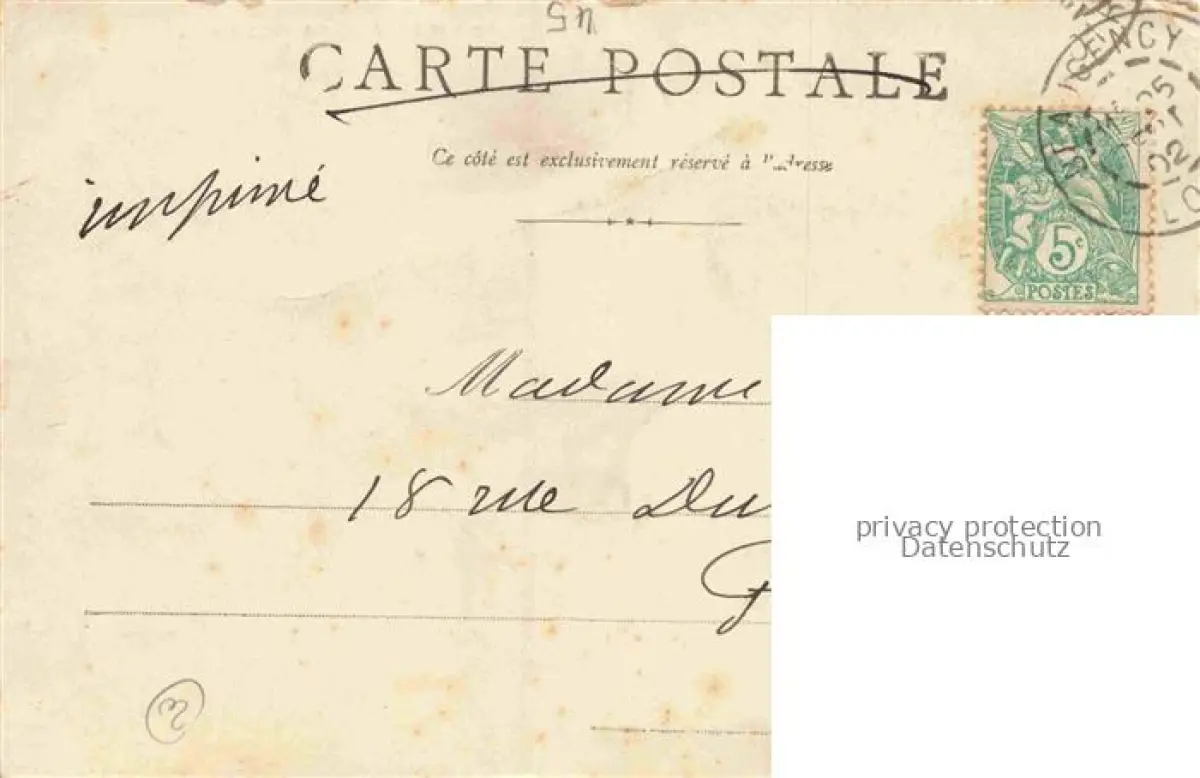 45
CARTE POSTALE
Ce côté est exclusivement réservé à l'adresse
imprimé
5c
POSTES
Madame
18 rue Du
privacy protection
Datenschutz